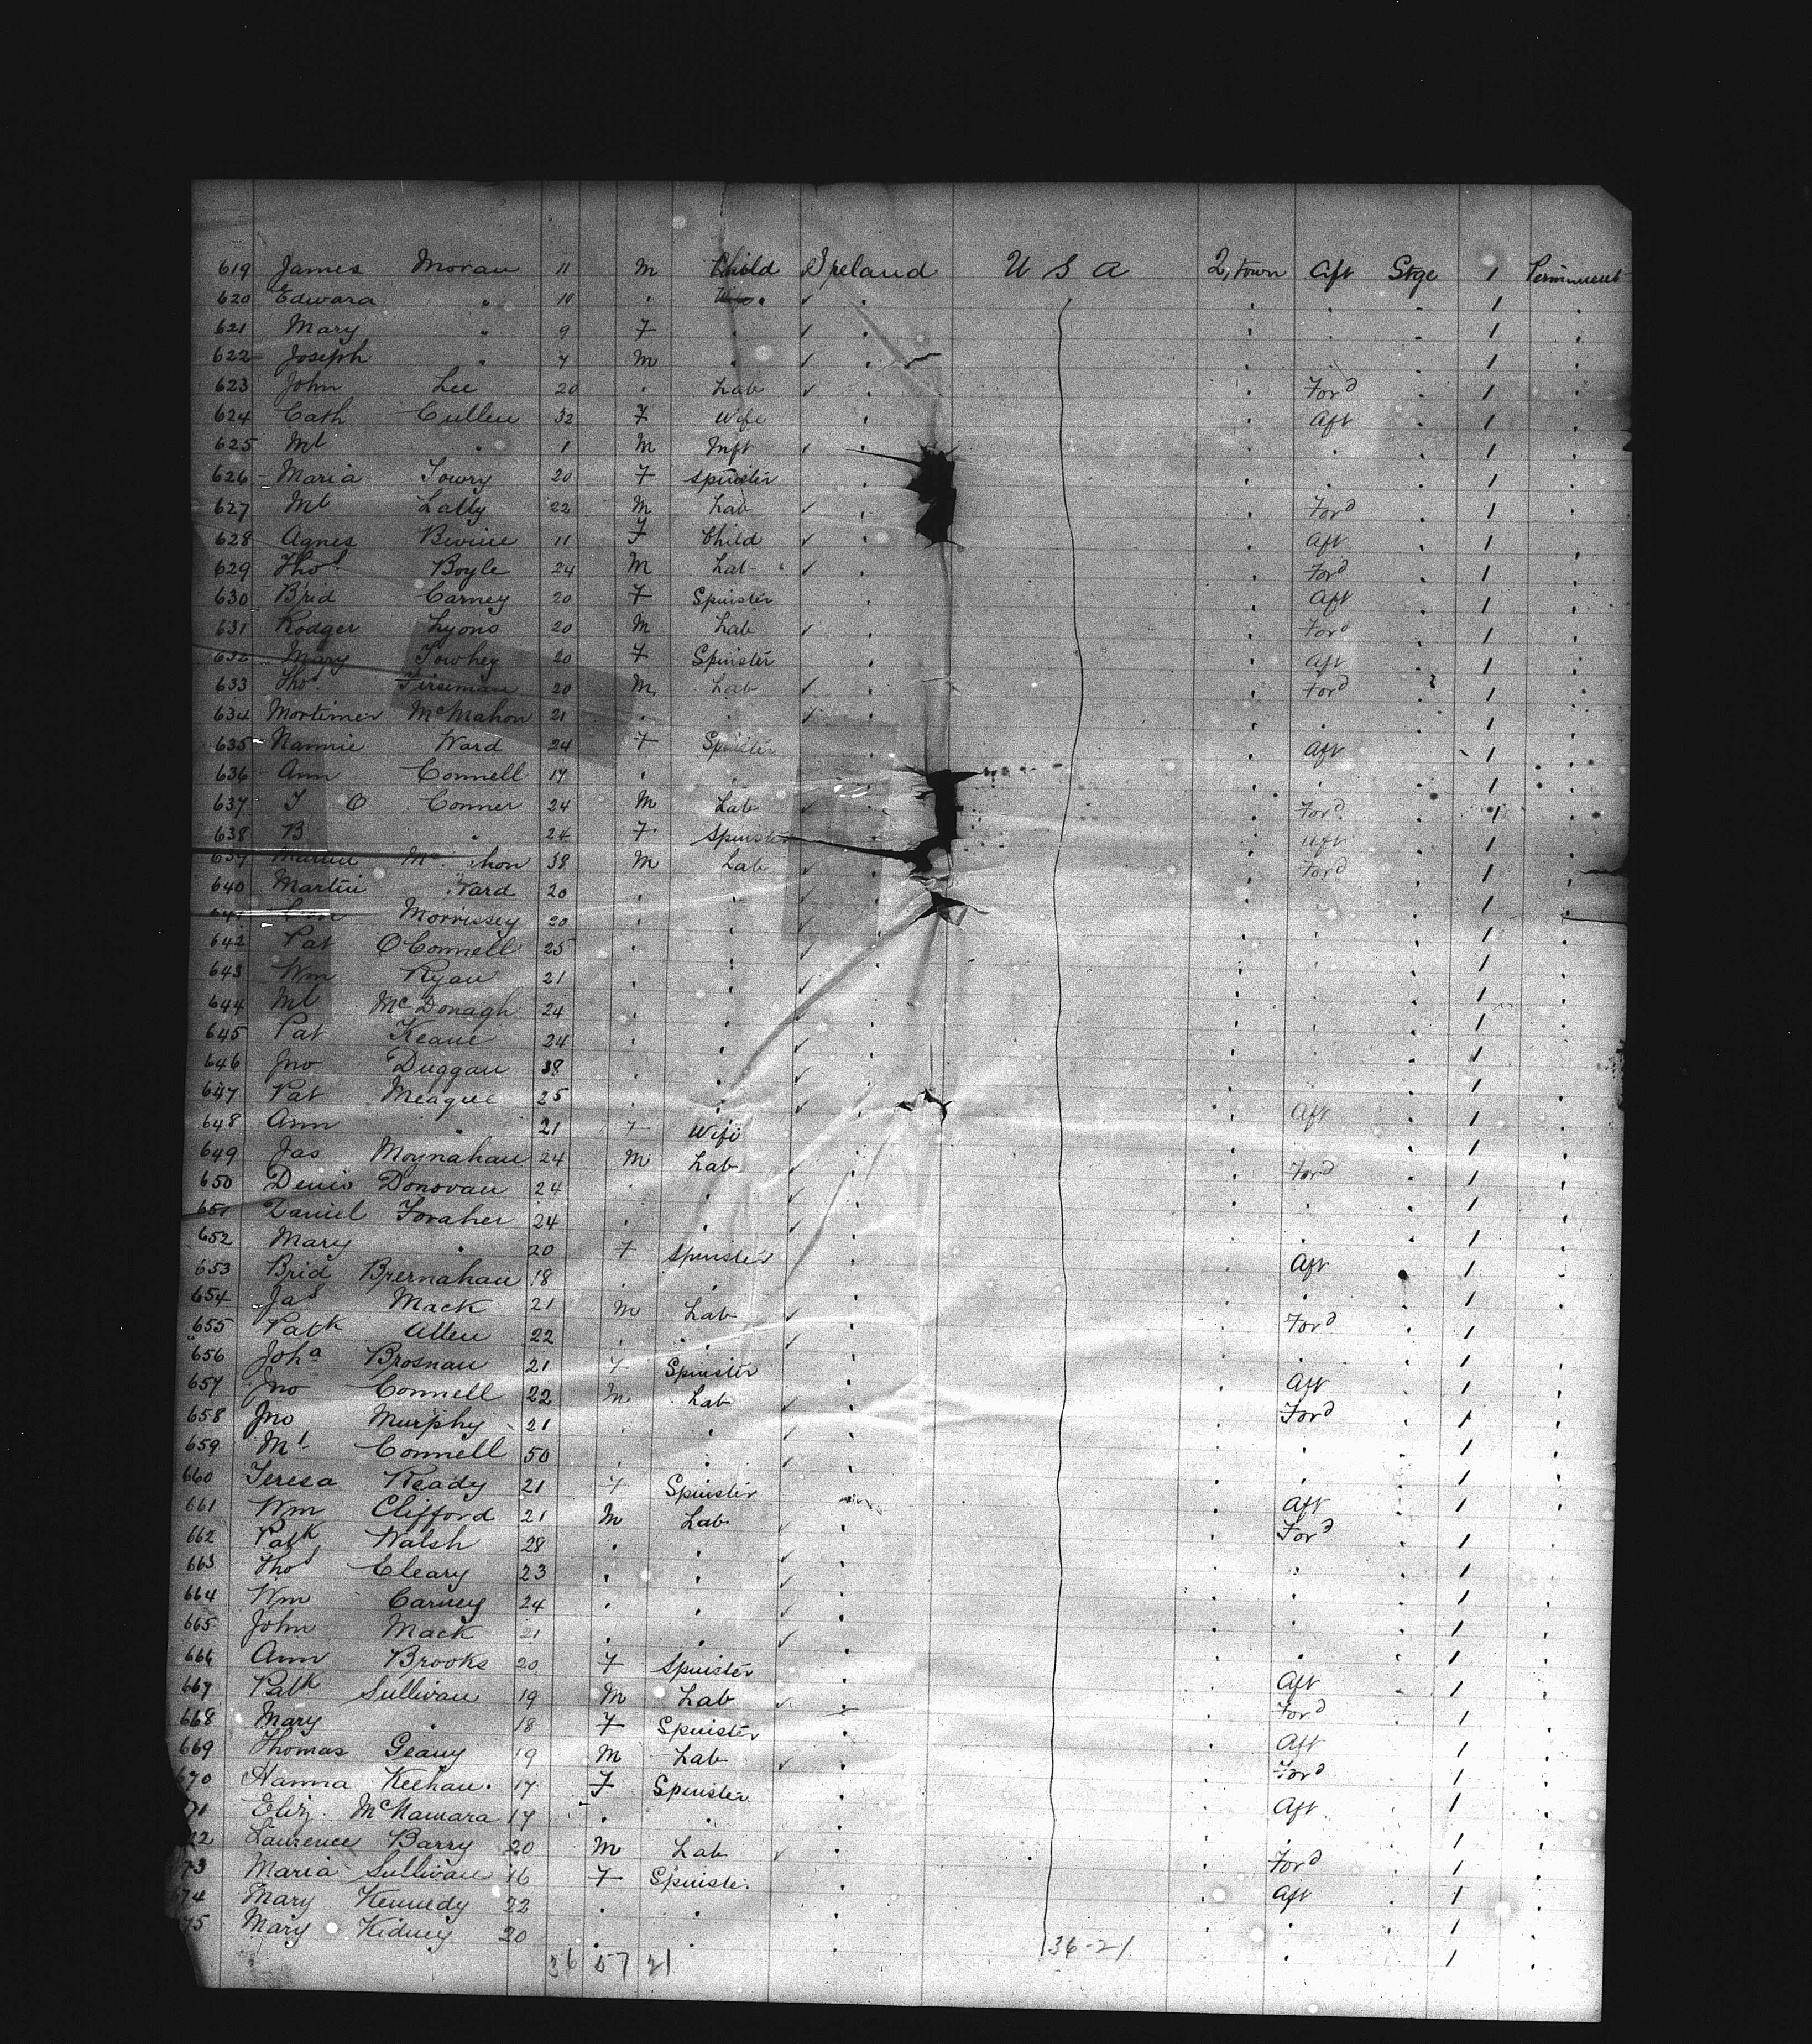 619 James Moran 11 M Child Ireland U S A Q, town Aft Stge 1 Perminent
620 Edward " 10 " " ✓ " " " " 1 "
621 Mary " 9 F " ✓ " " " " 1 "
622 Joseph " 7 M " ✓ " " " " 1 "
623 John Lee 20 " Lab ✓ " " Ford " 1 "
624 Cath Cullen 32 F Wife " " Aft " 1 "
625 Ml " 1 M Inft ✓ " " " " 1 "
626 Maria Towry 20 F Spinster " " " " 1 "
627 Ml Lally 22 M Lab ✓ " " Ford " 1 "
628 Agnes 11 F Child ✓ " " Aft " 1 "
629 Thos Boyle 24 M Lab ✓ " " Ford " 1 "
630 Brid Carney 20 F Spinster " " Aft " 1 "
631 Rodger Lyons 20 M Lab ✓ " " Ford " 1 "
632 Mary Towhey 20 F Spinster " " Aft " 1 "
633 Thos 20 M Lab ✓ " " Ford " 1 "
634 Mortimer McMahon 21 " " ✓ " " " " 1 "
635 Nannie Ward 24 F Spinster " " Aft " 1 "
636 Ann Connell 17 " " " " " " 1 "
637 T O Conner 24 M Lab ✓ " " Ford " 1 "
638 B " 24 F Spinster " " Aft " 1 "
639 Mc hon 38 M Lab ✓ " " Ford " 1 "
640 Martin Ward 20 " " ✓ " " " " 1 "
641 Morrissey 20 " " ✓ " " " " 1 "
642 Pat O'Connell 25 " " ✓ " " " " 1 "
643 Wm Ryan 21 " " ✓ " " " " 1 "
644 Ml McDonagh 24 " " ✓ " " " " 1 "
645 Pat Keane 24 " " ✓ " " " " 1 "
646 Jno Duggan 38 " " ✓ " " " " 1 "
647 Pat Meague 25 " " ✓ " " Aft " 1 "
648 Ann " 21 F Wife " " " " 1 "
649 Jas Moynahan 24 M Lab ✓ " " Ford " 1 "
650 Denis Donovan 24 " " ✓ " " " " 1 "
651 Daniel Foraher 24 " " ✓ " " " " 1 "
652 Mary " 20 F Spinster " " Aft " 1 "
653 Brid Bresnahan 18 " " " " " " 1 "
654 Jas Mack 21 M Lab ✓ " " Ford " 1 "
655 Patk Allen 22 " " ✓ " " " " 1 "
656 Joha Brosnan 21 F Spinster " " Aft " 1 "
657 Jno Connell 22 M Lab ✓ " " Ford " 1 "
658 Jno Murphy 21 " " ✓ " " " " 1 "
659 Ml Connell 50 " " ✓ " " " " 1 "
660 Teresa Ready 21 F Spinster " " Aft " 1 "
661 Wm Clifford 21 M Lab ✓ " " Ford " 1 "
662 Patk Walsh 28 " " ✓ " " " " 1 "
663 Thos Cleary 23 " " ✓ " " " " 1 "
664 Wm Carney 24 " " ✓ " " " " 1 "
665 John Mack 21 " " ✓ " " " " 1 "
666 Ann Brooks 20 F Spinster " " Aft " 1 "
667 Patk Sullivan 19 M Lab ✓ " " Ford " 1 "
668 Mary " 18 F Spinster " " Aft " 1 "
669 Thomas Geany 19 M Lab ✓ " " Ford " 1 "
670 Hanna Keehan 17 F Spinster " " Aft " 1 "
71 Eliz. McNamara 17 " " " " " " 1 "
72 Laurence Barry 20 M Lab ✓ " " Ford " 1 "
73 Maria Sullivan 16 F Spinster " " Aft " 1 "
74 Mary Kennedy 22 " " " " " " 1 "
75 Mary Kidney 20 " " " " " " 1 "
36 57 21 36-21